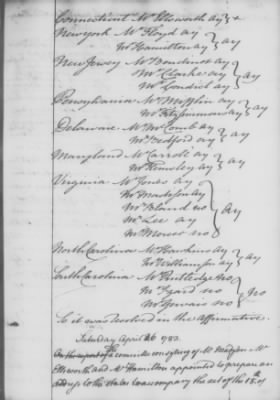 Connecticut Mr Ellsworth ay } +
New york Mr Floyd ay } ay
Mr Hamilton ay
New Jersey Mr Boudinot ay } ay
Mr Clarke ay
Mr Condict ay
Pensylvania Mr Mifflin ay } ay
Mr Fitzsimmons ay
Delaware Mr McComb ay } ay
Mr Bedford ay
Maryland Mr Carroll ay } ay
Mr Hemsley ay
Virginia Mr Jones ay } ay
Mr Madison ay
Mr Bland no
Mr Lee ay
Mr Mercer no
North Carolina Mr Hawkins ay } ay
Mr Williamson ay
South Carolina Mr Rutledge no } no
Mr Izard no
Mr Gervais no
So it was resolved in the affirmative.
Saturday April 26 1783.
On the report of a committee consisting of Mr Madison Mr
Ellsworth and Mr Hamilton appointed to prepare an
address to the states to accompany the act of the 18th of